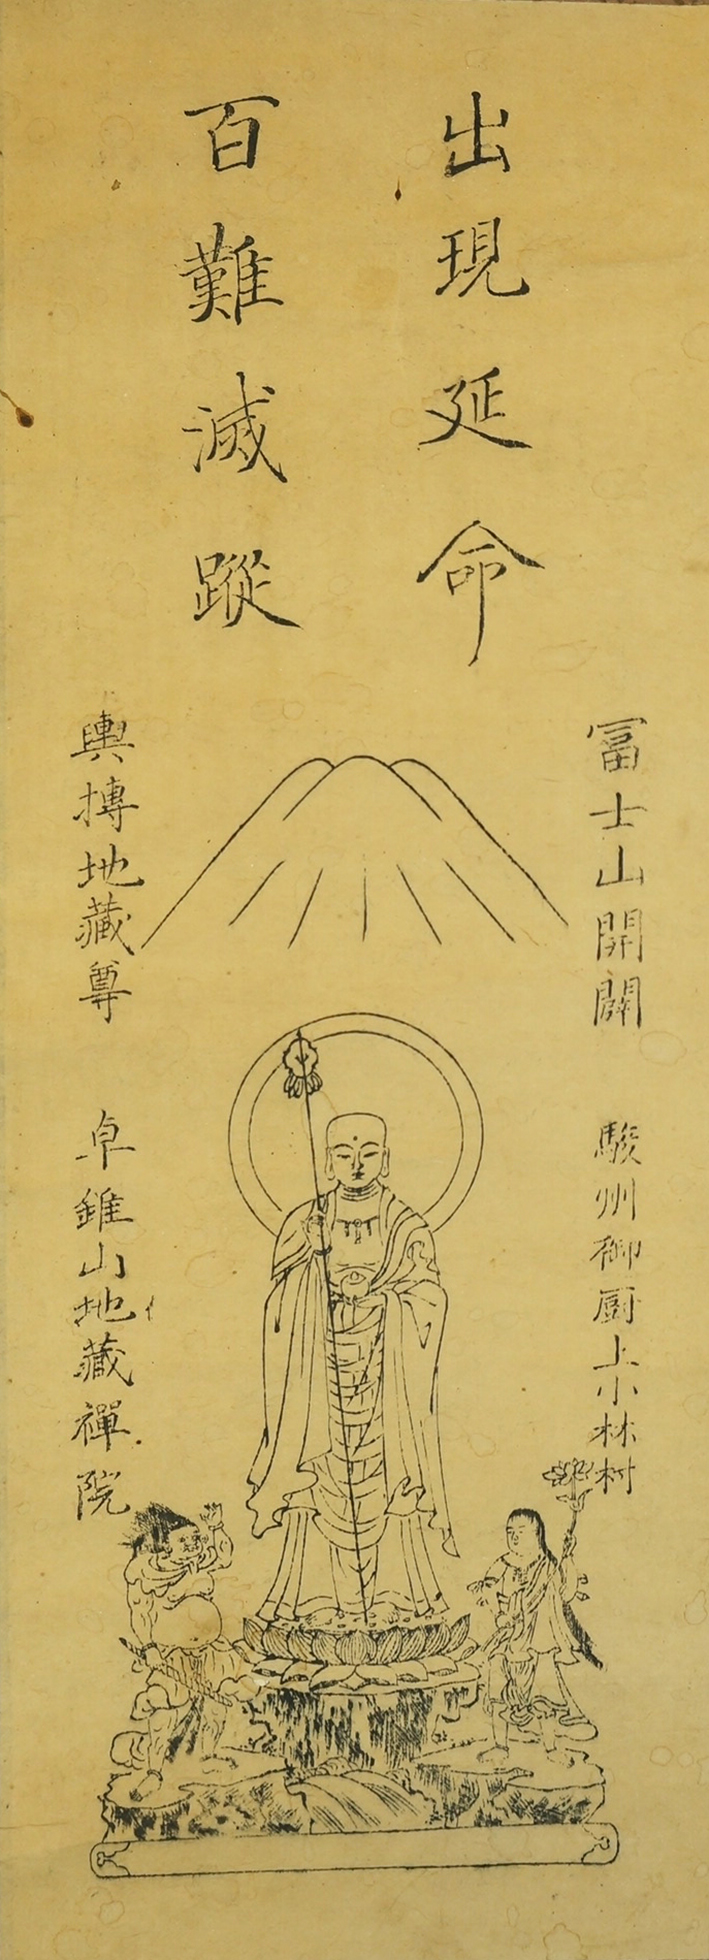 出現延命
百難滅蹤
冨士山開闢　駿州御厨上小林村
輿搏地藏尊　卓錐山地藏禪院